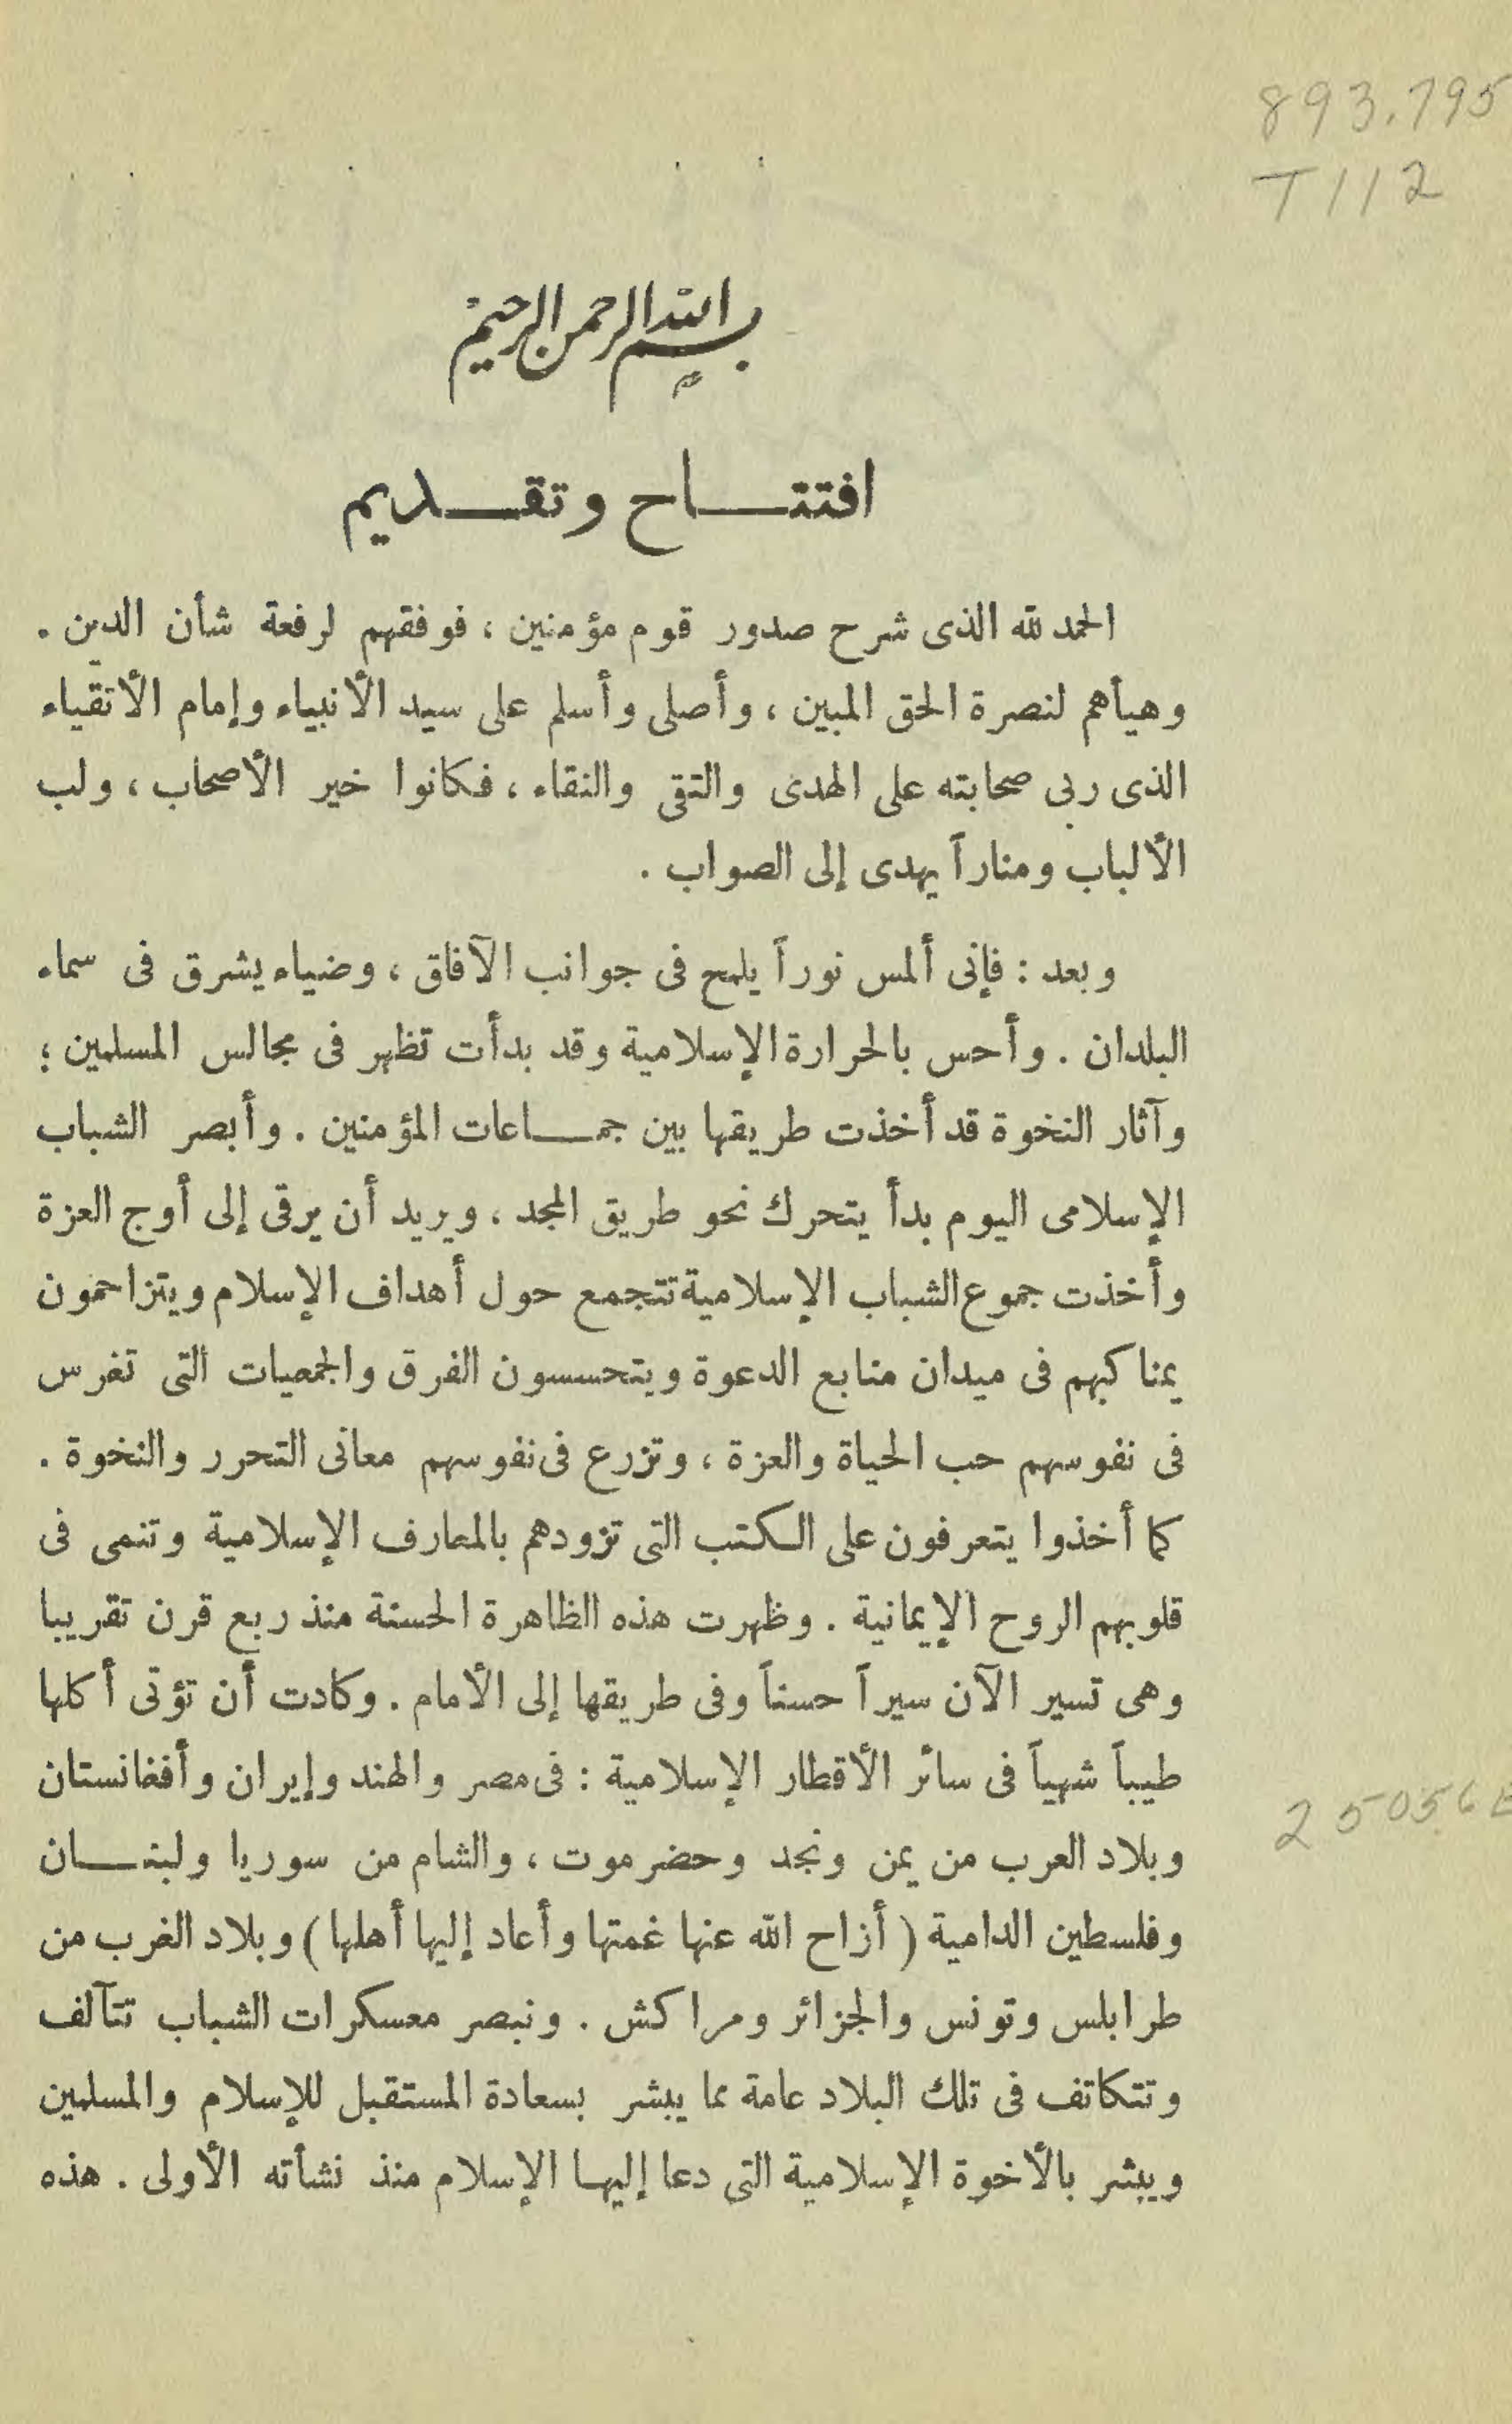 893.795
T112
بسم الله الرحمن الرحيم
افتتـــاح وتقـــديم
الحمد لله الذى شرح صدور قوم مؤمنين ، فوفقهم لرفعة شأن الدين .
وهيأهم لنصرة الحق المبين ، وأصلى وأسلم على سيد الأنبياء وإمام الأتقياء
الذى ربى صحابته على الهدى والتقى والنقاء ، فكانوا خير الأصحاب ، ولب
الألباب ومناراً يهدى إلى الصواب .
وبعد : فإنى ألمس نوراً يلمح فى جوانب الآفاق ، وضياء يشرق فى سماء
البلدان . وأحس بالحرارة الإسلامية وقد بدأت تظهر فى مجالس المسلمين ؛
وآثار النخوة قد أخذت طريقها بين جمـــاعات المؤمنين . وأبصر الشباب
الإسلامى اليوم بدأ يتحرك نحو طريق المجد ، ويريد أن يرقى إلى أوج العزة
وأخذت جموع الشباب الإسلامية تتجمع حول أهداف الإسلام ويتزاحمون
بمناكبهم فى ميدان منابع الدعوة ويتحسسون الفرق والجمعيات التى تغرس
فى نفوسهم حب الحياة والعزة ، وتزرع فى نفوسهم معانى التحرر والنخوة .
كما أخذوا يتعرفون على الكتب التى تزودهم بالمعارف الإسلامية وتنمى فى
قلوبهم الروح الإيمانية . وظهرت هذه الظاهرة الحسنة منذ ربع قرن تقريبا
وهى تسير الآن سيراً حسناً وفى طريقها إلى الأمام . وكادت أن تؤتى أكلها
طيباً شهياً فى سائر الأقطار الإسلامية : فى مصر والهند وإيران وأفغانستان
وبلاد العرب من يمن ونجد وحضرموت ، والشام من سوريا ولبنـــان
وفلسطين الدامية ( أزاح الله عنها غمتها وأعاد إليها أهلها ) وبلاد الغرب من
طرابلس وتونس والجزائر ومراكش . ونبصر معسكرات الشباب تتآلف
وتتكاتف فى تلك البلاد عامة مما يبشر بسعادة المستقبل للإسلام والمسلمين
ويبشر بالأخوة الإسلامية التى دعا إليهـا الإسلام منذ نشأته الأولى . هذه
25056